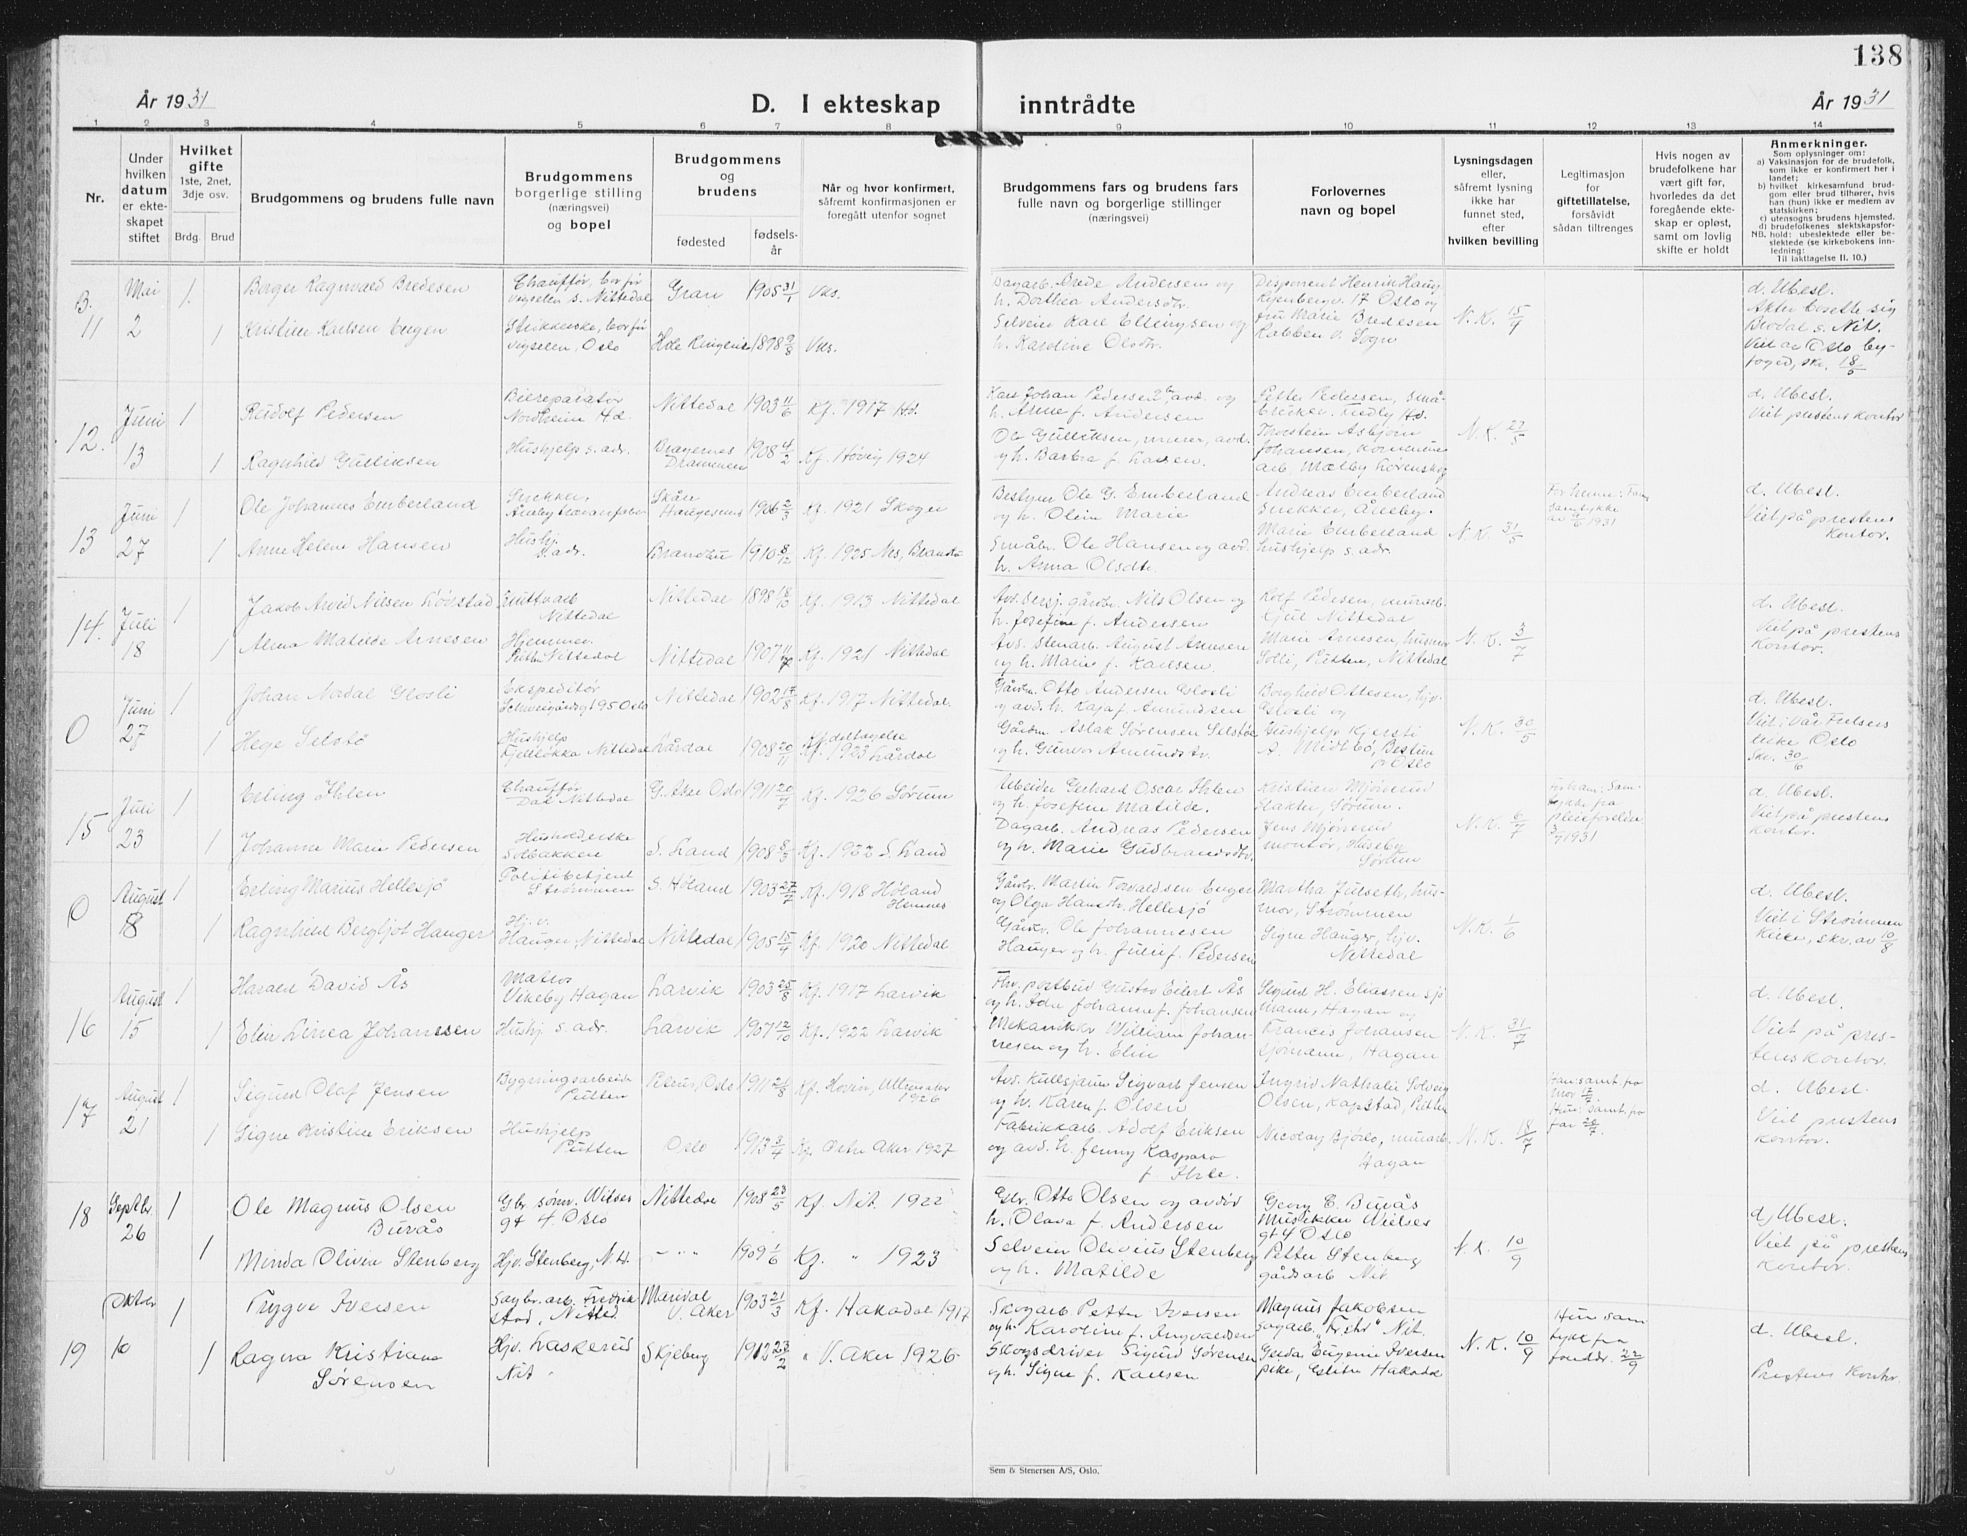 138
År 1931
D. I ekteskap inntrådte
År 1931
1 2 3 4 5 6 7 8 9 10 11 12 13 14
Nr.
Under hvilken datum er ekteskapet stiftet
Hvilket gifte
1ste, 2net, 3dje osv.
Brdg. Brud
Brudgommens og brudens fulle navn
Brudgommens borgerlige stilling (næringsvei) og bopel
Brudgommens og brudens
fødested
fødselsår
Når og hvor konfirmert, såfremt konfirmasjonen er foregått utenfor sognet
Brudgommens fars og brudens fars fulle navn og borgerlige stillinger (næringsvei)
Forlovernes navn og bopel
Lysningsdagen eller, såfremt lysning ikke har funnet sted, efter hvilken bevilling
Legitimasjon for giftetillatelse, forsåvidt sådan tiltrenges
Hvis nogen av brudefolkene har vært gift før, hvorledes da det foregående ekteskap er opløst, samt om lovlig skifte er holdt
Anmerkninger.
Som oplysninger om:
a) Vaksinasjon for de brudefolk, som ikke er konfirmert her i landet;
b) hvilket kirkesamfund brudgom eller brud tilhører, hvis han (hun) ikke er medlem av statskirken;
c) utensogns brudens hjemsted.
d) brudefolkenes slektskapsforhold: ubeslektede eller beslektede (se kirkebokens innledning:
NB.
Til iakttagelse II. 10.)
B. 11 Mai 2
1 Borger Ragnvald Bredesen
Chauffør
Gran 1905 31/1 Vks.
Dagarb. Brede Andersen og h. Dorthea Andersdtr.
Disponent Henrik Haug
17 Oslo og fru Marie Bredesen Rabben v. Sogn
1 Kristine Karlsen Engen
Oslo
Hole Ringerike 1898 9/8 Vks.
Selveier Karl Ellingsen og h. Karoline Olsdtr.
N. K. 15/4
d. Ubesl.
Akter bosette sig
s. Nit.
Viet av Oslo byfoged, skr. 18/5
12. Juni 13
1 Rudolf Pedersen
Bilreparatør Nordheim Hd.
Nittedal 1903 11/6 Kf. 1917 Hd.
Karl Johan Pedersen avd. og h. Anne f. Andersen
Petter Pedersen, småbruker. Hd.
1 Ragnhild Gulliksen
Hushjelp s. adr.
Bragernes Drammen 1908 4/2 Kf. Høvig 1924
Ole Gulliksen, murer, avd. og h. Barbra f. Larsen.
Torstein Asbjørn Johansen,
N. K. 27/5
d. Ubesl.
Viet prestens kontor
13 Juni 27
1 Ole Johannes Emberland
Snekker,
Skåre Haugesund 1906 2/3 Kf. 1921 Skoger
Bestyrer Ole G. Emberland og h. Olein Marie
Andreas Emberland Snekker, Åneby.
1 Anne Helene Hansen
Hushj. s. adr.
Brandbu 1910 8/12 Kf. 1925 Nes, Brandbu
Småbr. Ole Hansen og avd. h. Anna Olsdtr.
Marie Emberland hushjelp s. adr.
N. K. 31/5
For henne: Fars samtykke av 9/6 1931
d. Ubesl.
Viet på prestens kontor.
14. Juli 18
1 Jakob Arvid Nilsen Løvstad
Nittedal
Nittedal 1898 18/10 Kf. 1913 Nittedal
Nils Olsen og h. Josefine f. Andersen
Rolf Pedersen, murarb. Nittedal
1 Alma Matilde Arnesen
Hjemmev. Nittedal
Nittedal 1907 11/7 Kf. 1921 Nittedal
Avd. Stenarb. August Arnesen og h. Marie f. Karlsen.
Marie Arnesen, husmor Solli, Rotten, Nittedal
N. K. 3/7
d. Ubesl.
Viet på prestens kontor.
O Juni 27
1 Johan Glosli
Ekspeditør Schweigårdsgt 95 Oslo
Nittedal 1902 17/8 Kf. 1917 Nittedal.
Gårdm. Otto Andersen Glosli og avd. h. Kaja f. Amundsen
Borghild Ottesen, hjv. Glosli og
1 Hege Selstø
Hushjelp Nittedal
Lårdal 1908 20/11 Kf. 1923 Lårdal
Gårdm. Aslak Sørensen Selstø og h. Gunvor Amundsdtr.
Hushjelp Kjersti A. Midtbø, Bestum pr Oslo
N. K. 30/5
d. Ubesl.
Viet i Vår Frelsers kirke Oslo
Skr. 30/6
15 Juli 23
1 Erling Ihlen
Chauffør Dal Nittedal
G. Aker Oslo 1911 20/7 Kf. 1926 Sørum
Arbeider Gerhard Oscar Ihlen og h. Josefine Matilde.
Kristian Mjønerud Slakter, Sørum.
1 Johanne Marie Pedersen
Husholderske Solbakken
S. Land 1908 Kf. S. Land
Dagarb. Andreas Pedersen og h. Marie Gudbrandsdtr.
Jens Mjønerud montør, Huseby Sørum
N. K. 6/7
For ham: Samtykke fra pleieforeldre 1931
d. Ubesl.
Viet på prestens kontor.
O August 8
1 Erling Marius Hellesjø
Politibetjent Strømmen
S. Høland 1903 27/7 Kf. 1918 Høland Hemnes
Gårdbr. Martin Torvaldsen Enger og Olga Hansdtr. Hellesjø
Martha Julseth, husmor, Strømmen
1 Ragnhild Bergljot Hauger
Hj. v. Hauger Nittedal
Nittedal 1905 15/4 Kf. 1920 Nittedal
Gårdbr. Ole Johannesen Hauger og h. Julie f. Pedersen
Signe Hauger, hjv. Nittedal
N. K. 1/6
d. Ubesl.
Viet i Strømmen Kirke, skr. av 10/8
16 August 15
1 Harald David Ås
Matros Vikeby Hagan
Larvik 1903 25/8 Kf. 1917 Larvik
Fhv. postbud Gustav Eilert Ås og h. Ida Johanne f. Johansen
Sigurd H. Eliassen sjømann, Hagan og
1 Elin Linea Johannesen
Hushj. s. adr.
Larvik 1907 12/10 Kf. 1922 Larvik
Mekaniker William Johannesen og h. Elin
Francis Johansen sjømann, Hagan
N. K. 31/7
d. Ubesl.
Viet på prestenskontor.
17 August 21
1 Sigurd Olaf Jensen
Bygningsarbeider Rotten
Petrus, Oslo 1911 Kf. Hovin, Ullensaker 1926
Avd. Kullsjauer Sigvart Jensen og h. Karen f. Olsen
Ingrid Nathalie Solveig Olsen, Kapstad, Rotten
1 Signe Kristine Eriksen
Hushjelp Rotten
Oslo 1913 Kf. Østre Aker 1927
Fabrikkarb. Adolf Eriksen og avd. h. Jenny Kaspara f. Ihle.
Nicolay Bjørlo, murarb. Hagan
N. K. 18/7
Han: samt. fra mor
Hun: samt. fra far
d. Ubesl.
Viet prestens kontor.
18 Septbr 26
1 Ole Magnus Olsen Buraås
Gbr sønn. Wilses gt 4 Oslo
Nittedal 1908 23/5 Kf. Nit. 1922
Gbr. Otto Olsen og avdøde h. Olava f. Andersen
Georg E. Buraås Musikker Wilses gt 4 Oslo
1 Minda Olivia Stenberg
Hjv. Stenberg, Nit.
— " — 1909 1/6 Kf. " 1923
Selveier Olivius Stenberg og h. Matilde
Petter Stenberg gårdsarb. Nit.
N. K. 10/9
d. Ubesl.
Viet på prestens kontor.
19 Oktobr 10
1 Trygve Iversen
Sagbr. arb. Fredrikstad, Nitted.
Maridal V. Aker 1903 21/3 Kf. Hakadal 1917
Skogarb Petter Iversen og h. Karoline f. Ingvaldsen
Magnus Jakobsen Sagarb. "Fr.std" Nit.
1 Ragna Kristiane Sørensen
Hjv. Laskerud Nit.
Skjeberg 1912 23/2 " V. Aker 1926
Skogsdriver Sigurd Sørensen og h. Signe f. Karlsen
Gerda Eugenie Iversen pike, Hakadal
N. K. 10/9
Hun samtykke fra foreldr. 22/9
d. Ubesl.
Prestens kontor
Sem & Stenersen A/S, Oslo.